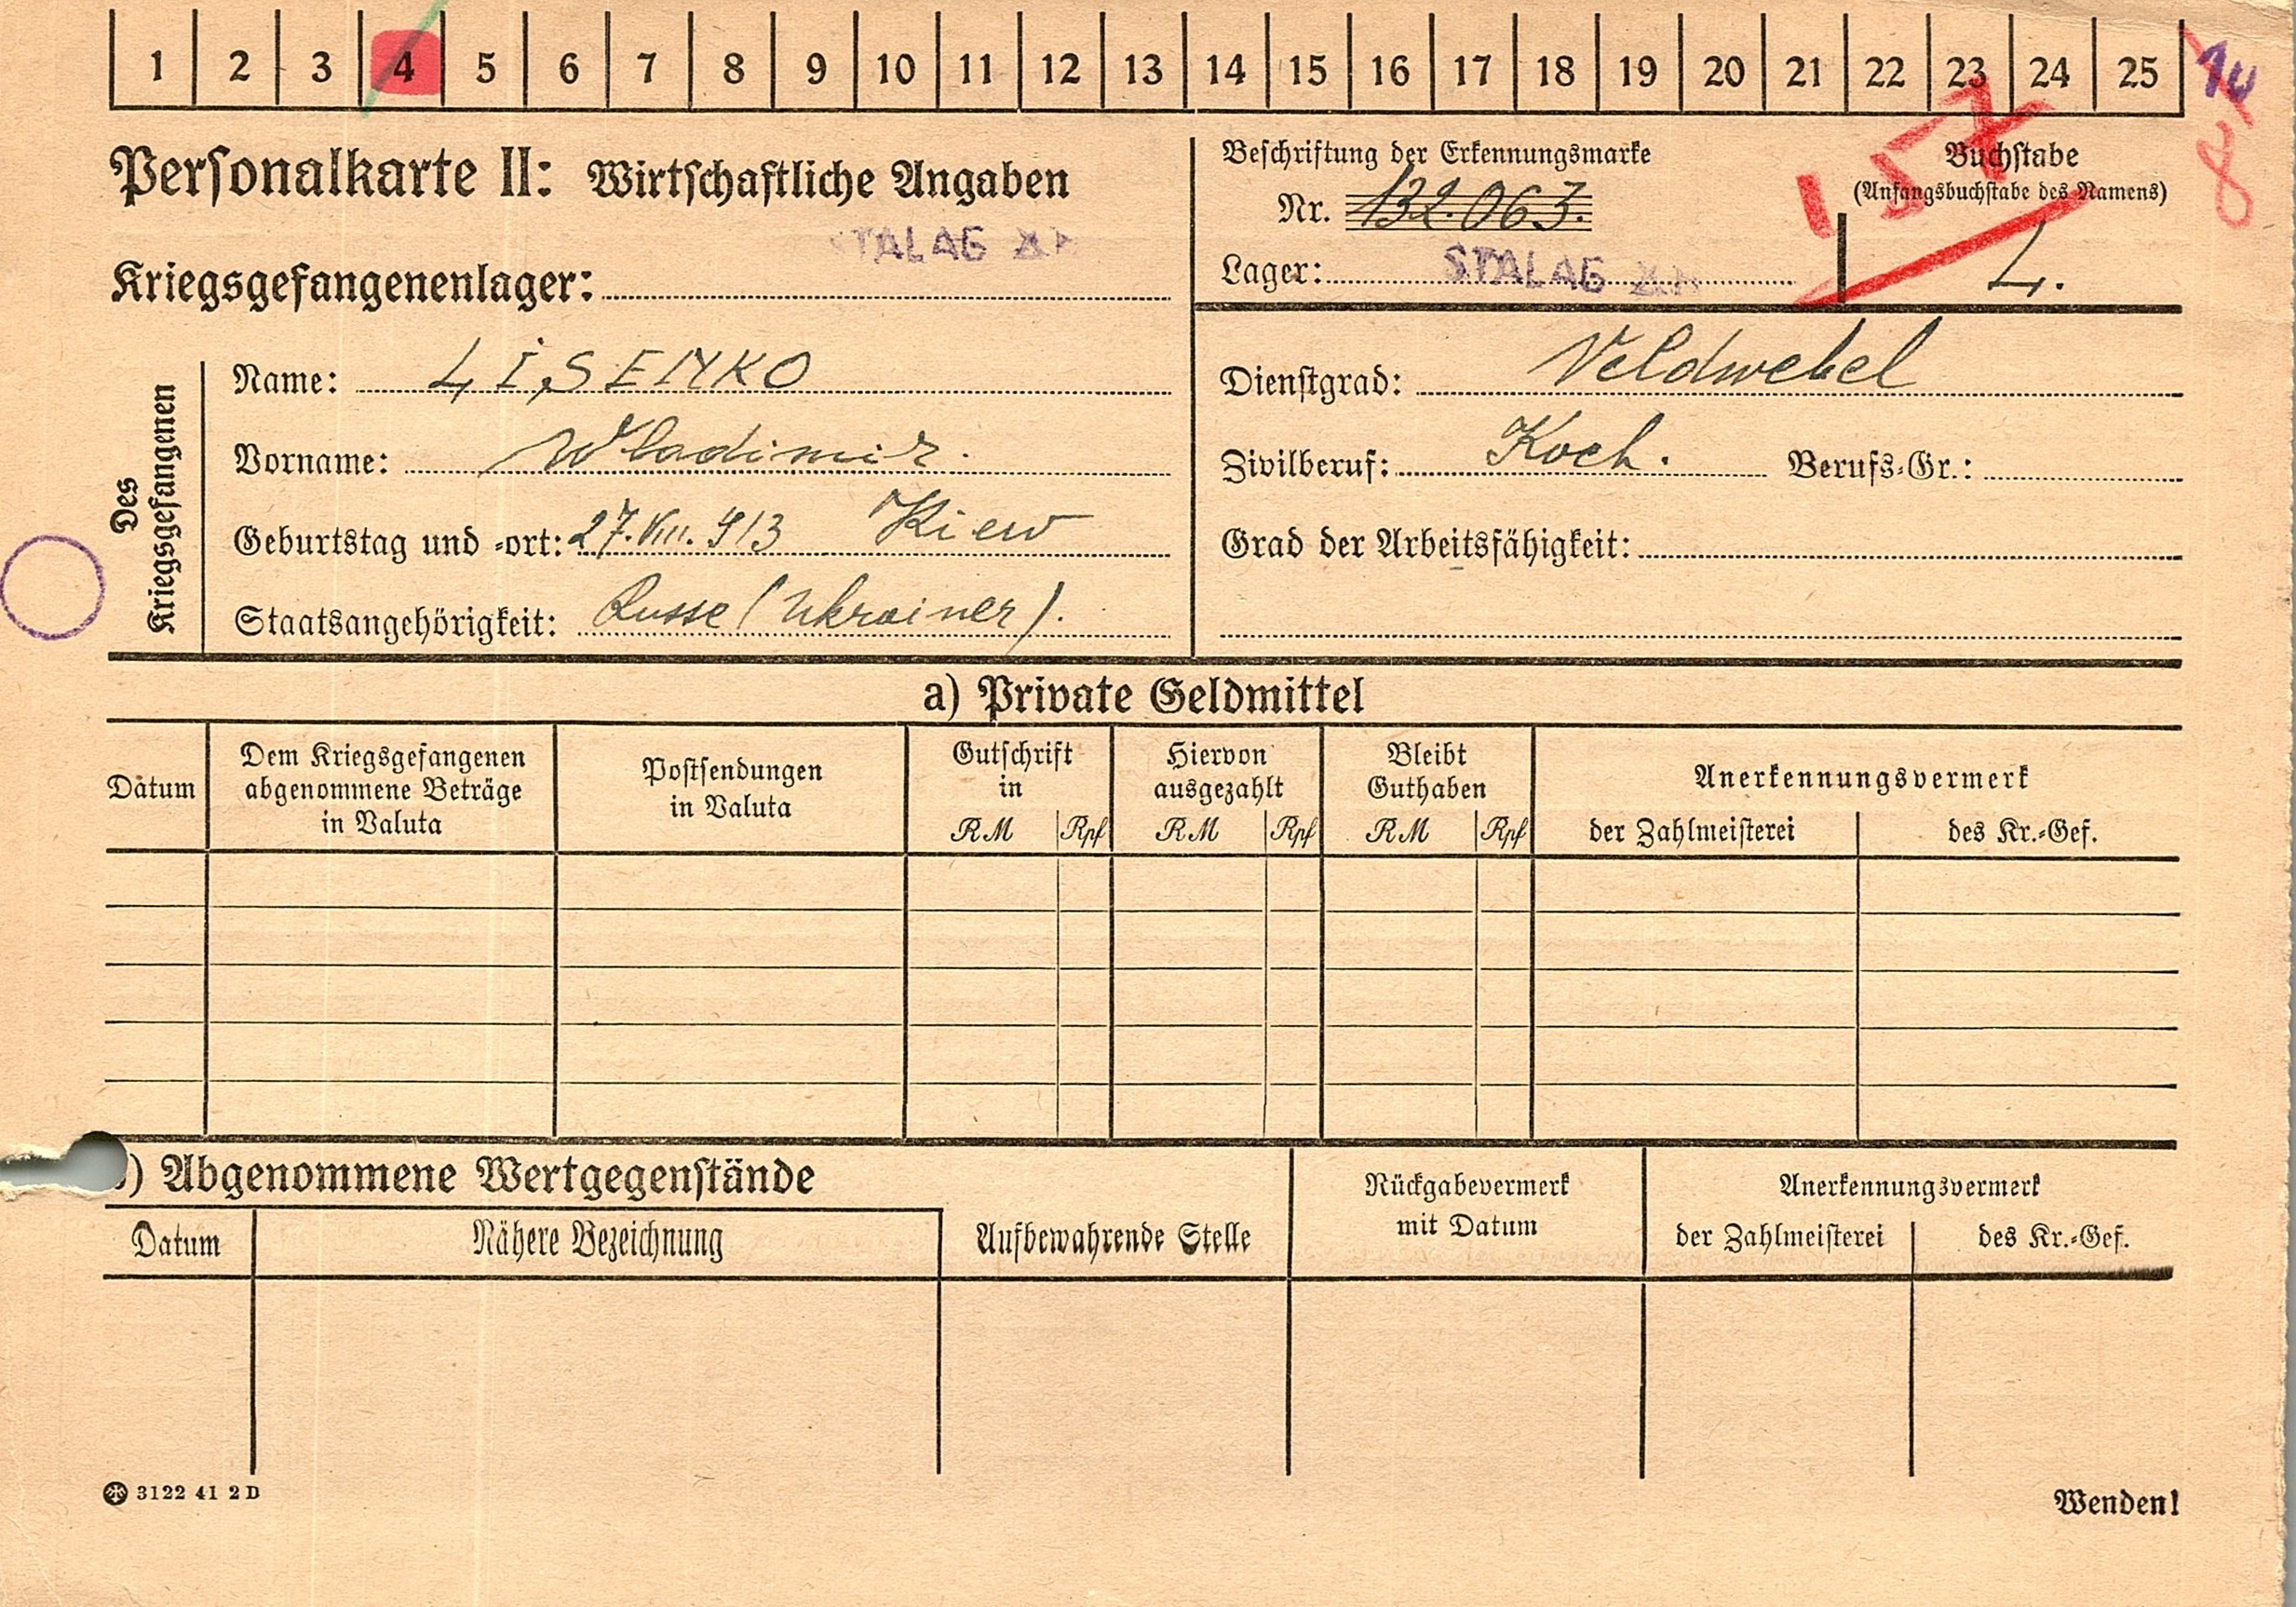 1 2 3 4 5 6 7 8 9 10 11 12 13 14 15 16 17 18 19 20 21 22 23 24 25
Personalkarte II: Wirtschaftliche Angaben
STALAG
Kriegsgefangenenlager:
Beschriftung der Erkennungsmarke
Nr. 132.063.
Lager: STALAG
157
Buchstabe
(Anfangsbuchstabe des Namens)
L.
Des Kriegsgefangenen
Name: LISENKO
Vorname: Wladimir.
Geburtstag und -ort: 27.VIII.913 Kiew
Staatsangehörigkeit: Russe (Ukrainer).
Dienstgrad: Veldwebel
Zivilberuf: Koch. Berufs-Gr.:
Grad der Arbeitsfähigkeit:
a) Private Geldmittel
Datum
Dem Kriegsgefangenen
abgenommene Beträge
in Valuta
Postsendungen
in Valuta
Gutschrift
in
RM Rpf
Hiervon
ausgezahlt
RM Rpf
Bleibt
Guthaben
RM Rpf
Anerkennungsvermerk
der Zahlmeisterei des Kr.-Gef.
) Abgenommene Wertgegenstände
Datum Nähere Bezeichnung Aufbewahrende Stelle
Rückgabevermerk
mit Datum
Anerkennungsvermerk
der Zahlmeisterei des Kr.-Gef.
3122 41 2 D
Wenden!